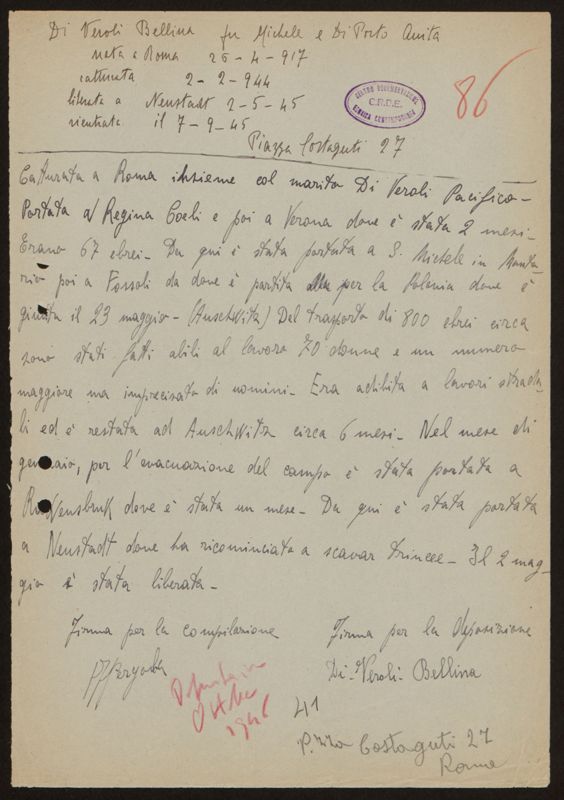 Di Veroli Bellina fu Michele e Di Porto Anita
nata a Roma 26-4-917
catturata 2-2-944
liberata a Neustadt 2-5-45
rientrata il 7-9-45
CENTRO DOCUMENTAZIONE
C.R.D.E.
EBRAICA CONTEMPORANEA
86
Piazza Costaguti 27
Catturata a Roma insieme col marito Di Veroli Pacifico-
Portata a Regina Coeli e poi a Verona dove è stata 2 mesi-
Erano 67 ebrei- Da qui è stata portata a S. Michele in Manto
rio poi a Fossoli da dove è partita per la Polonia dove è
giunta il 23 maggio-(Auschwitz) Del trasporto di 800 ebrei circa
sono stati fatti abili al lavoro 70 donne e un numero
maggiore ma imprecisato di uomini- Era adibita a lavori strada
li ed è restata ad Auschwitz circa 6 mesi- Nel mese di
gennaio, per l'evacuazione del campo è stata portata a
dove è stata un mese- Da qui è stata portata
a Neustadt dove ha ricominciato a scavar trincee- Il 2 mag-
gio è stata liberata-
Firma per la compilazione Firma per la deposizione
Di-Veroli-Bellina
Ottobre
41
P.zza Costaguti 27
Roma